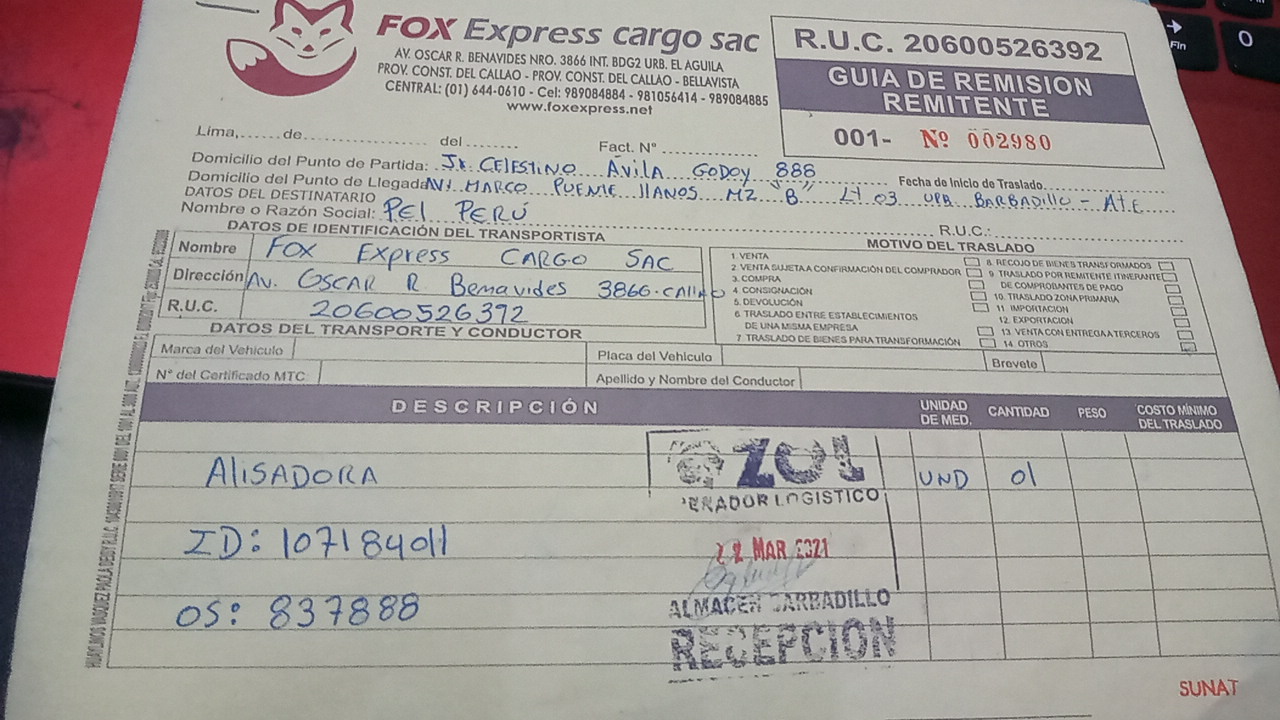 FOX Express cargo sac
AV. OSCAR R. BENAVIDES NRO. 3866 INT. BDG2 URB. EL AGUILA
PROV. CONST. DEL CALLAO - PROV. CONST. DEL CALLAO - BELLAVISTA
CENTRAL: (01) 644-0610 - Cel: 989084884 - 981056414 - 989084885
www.foxexpress.net
R.U.C. 20600526392
GUIA DE REMISION
REMITENTE
001- Nº 002980
Lima,...... de................... del ........ Fact. Nº .............
Domicilio del Punto de Partida: Jr. CELESTINO Avila GODOY 888 Fecha de Inicio de Traslado
Domicilio del Punto de Llegada Av. MARCO PUENTE llANOS MZ "B" Lt 03 URB BARBADILLO - ATE
DATOS DEL DESTINATARIO
Nombre o Razón Social: PEI PERÚ R.U.C.:
DATOS DE IDENTIFICACIÓN DEL TRANSPORTISTA
Nombre FOX Express CARGO SAC
Dirección Av. OSCAR R Benavides 3866-CAllAO
R.U.C. 20600526392
MOTIVO DEL TRASLADO
1. VENTA
2. VENTA SUJETA A CONFIRMACIÓN DEL COMPRADOR
3. COMPRA
4. CONSIGNACIÓN
5. DEVOLUCIÓN
6. TRASLADO ENTRE ESTABLECIMIENTOS
DE UNA MISMA EMPRESA
7. TRASLADO DE BIENES PARA TRANSFORMACIÓN
8. RECOJO DE BIENES TRANSFORMADOS
9. TRASLADO POR REMITENTE ITINERANTE
DE COMPROBANTES DE PAGO
10. TRASLADO ZONA PRIMARIA
11. IMPORTACION
12. EXPORTACION
13. VENTA CON ENTREGA A TERCEROS
14. OTROS
DATOS DEL TRANSPORTE Y CONDUCTOR
Marca del Vehículo Placa del Vehículo Brevete
N° del Certificado MTC Apellido y Nombre del Conductor
DESCRIPCIÓN UNIDAD DE MED. CANTIDAD PESO COSTO MÍNIMO DEL TRASLADO
AlISADORA UND 01
ID: 107184011
OS: 837888
ZOL
OPERADOR LOGISTICO
22 MAR 2021
ALMACEN BARBADILLO
RECEPCION
SUNAT
Fin